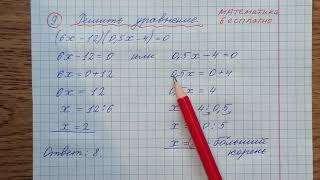 9) Решить уравнение
МАТЕМАТИКА
БЕСПЛАТНО
(6x-12)(0,5x-4)=0
6x-12=0 или 0,5x-4=0
6x=0+12 0,5x=0+4
6x=12 x=4
x=12:6 x= 4:0,5
x=2 x= 0:5
Ответ: 8. x= больший
корень